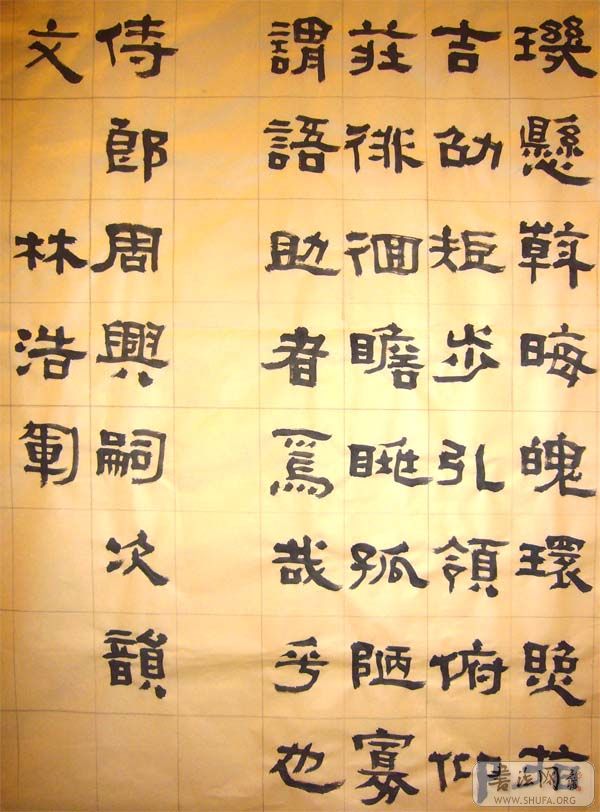 璣懸斡晦魄環照
吉劭矩步引領俯仰
莊徘徊瞻眺孤陋寡
謂語助者焉哉乎也
侍郎周興嗣次韻
文 林浩軍
WWW.SHUFA.ORG